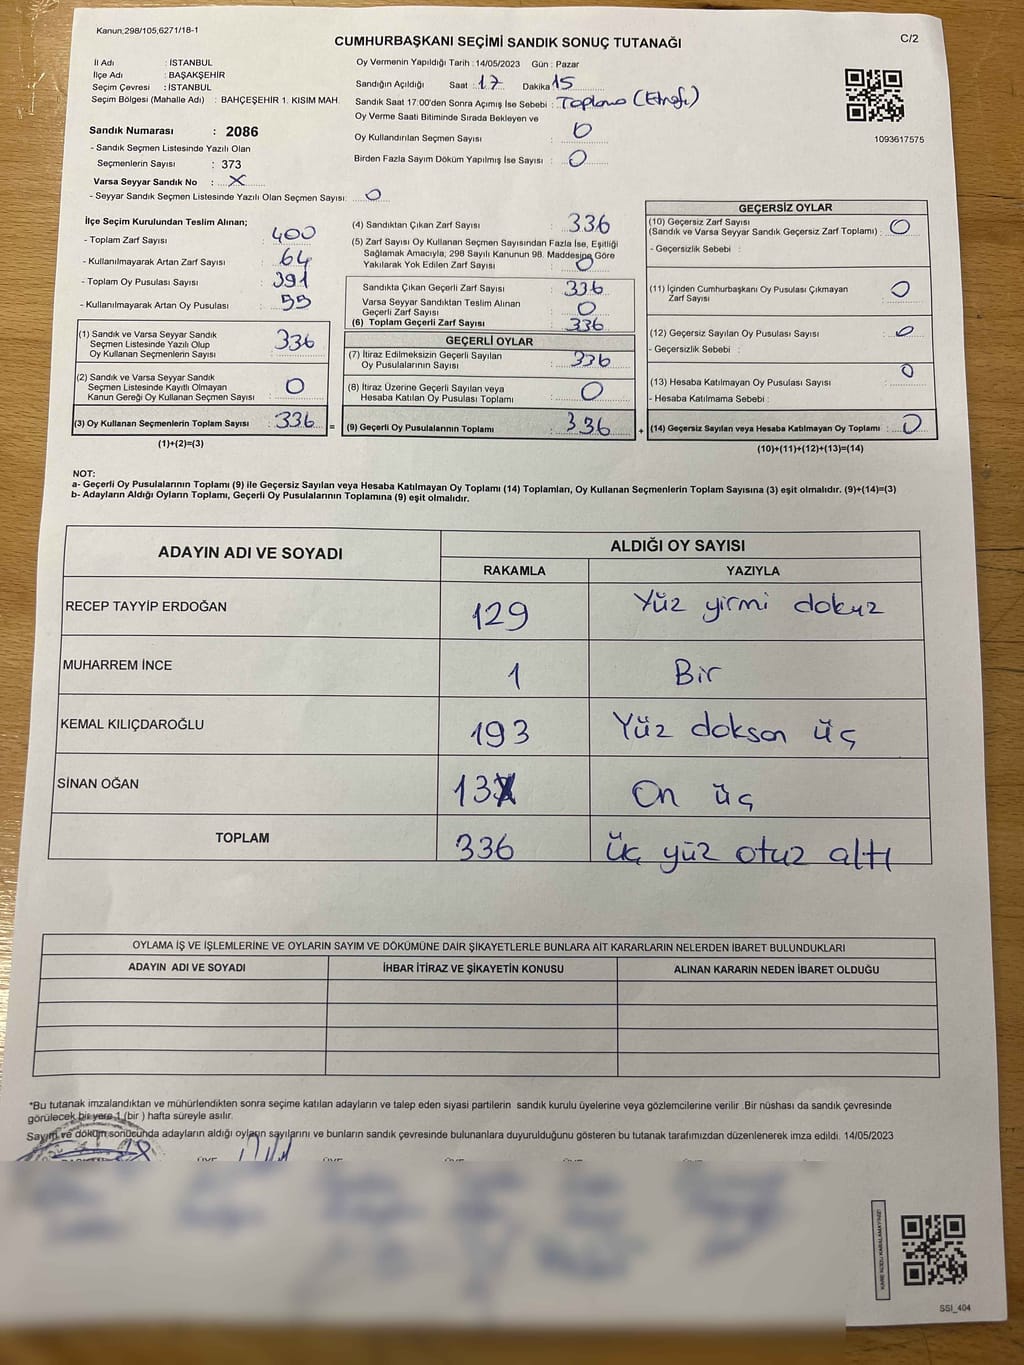 Kanun:298/105,6271/18-1
C/2
CUMHURBAŞKANI SEÇİMİ SANDIK SONUÇ TUTANAĞI
İl Adı : İSTANBUL
İlçe Adı : BAŞAKŞEHİR
Seçim Çevresi : İSTANBUL
Seçim Bölgesi (Mahalle Adı) : BAHÇEŞEHİR 1. KISIM MAH.
Sandık Numarası : 2086
- Sandık Seçmen Listesinde Yazılı Olan
Seçmenlerin Sayısı : 373
Varsa Seyyar Sandık No : X
- Seyyar Sandık Seçmen Listesinde Yazılı Olan Seçmen Sayısı: 0
Oy Vermenin Yapıldığı Tarih : 14/05/2023 Gün : Pazar
Sandığın Açıldığı Saat : 17 Dakika 15
Sandık Saat 17:00'den Sonra Açımış İse Sebebi :
Oy Verme Saati Bitiminde Sırada Bekleyen ve
Oy Kullandırılan Seçmen Sayısı : 0
Birden Fazla Sayım Döküm Yapılmış İse Sayısı : 0
1093617575
İlçe Seçim Kurulundan Teslim Alınan;
- Toplam Zarf Sayısı : 400
- Kullanılmayarak Artan Zarf Sayısı : 64
- Toplam Oy Pusulası Sayısı : 391
- Kullanılmayarak Artan Oy Pusulası : 55
(1) Sandık ve Varsa Seyyar Sandık
Seçmen Listesinde Yazılı Olup
Oy Kullanan Seçmenlerin Sayısı : 336
(2) Sandık ve Varsa Seyyar Sandık
Seçmen Listesinde Kayıtlı Olmayan
Kanun Gereği Oy Kullanan Seçmen Sayısı : 0
(3) Oy Kullanan Seçmenlerin Toplam Sayısı : 336 =
(1)+(2)=(3)
(4) Sandıktan Çıkan Zarf Sayısı : 336
(5) Zarf Sayısı Oy Kullanan Seçmen Sayısından Fazla İse, Eşitliği
Sağlamak Amacıyla, 298 Sayılı Kanunun 98. Maddesine Göre
Yakılarak Yok Edilen Zarf Sayısı : 0
Sandıkta Çıkan Geçerli Zarf Sayısı : 336
Varsa Seyyar Sandıktan Teslim Alınan
Geçerli Zarf Sayısı : 0
(6) Toplam Geçerli Zarf Sayısı : 336
GEÇERLİ OYLAR
(7) İtiraz Edilmeksizin Geçerli Sayılan
Oy Pusulalarının Sayısı : 336
(8) İtiraz Üzerine Geçerli Sayılan veya
Hesaba Katılan Oy Pusulası Toplamı : 0
(9) Geçerli Oy Pusulalarının Toplamı : 336 +
GEÇERSİZ OYLAR
(10) Geçersiz Zarf Sayısı
(Sandık ve Varsa Seyyar Sandık Geçersiz Zarf Toplamı) : 0
- Geçersizlik Sebebi :
(11) İçinden Cumhurbaşkanı Oy Pusulası Çıkmayan
Zarf Sayısı : 0
(12) Geçersiz Sayılan Oy Pusulası Sayısı : 0
- Geçersizlik Sebebi :
(13) Hesaba Katılmayan Oy Pusulası Sayısı : 0
- Hesaba Katılmama Sebebi :
(14) Geçersiz Sayılan veya Hesaba Katılmayan Oy Toplamı : 0
(10)+(11)+(12)+(13)=(14)
NOT:
a- Geçerli Oy Pusulalarının Toplamı (9) ile Geçersiz Sayılan veya Hesaba Katılmayan Oy Toplamı (14) Toplamları, Oy Kullanan Seçmenlerin Toplam Sayısına (3) eşit olmalıdır. (9)+(14)=(3)
b- Adayların Aldığı Oyların Toplamı, Geçerli Oy Pusulalarının Toplamına (9) eşit olmalıdır.
ADAYIN ADI VE SOYADI ALDIĞI OY SAYISI
RAKAMLA YAZIYLA
RECEP TAYYİP ERDOĞAN 129 Yüz yirmi dokuz
MUHARREM İNCE 1 Bir
KEMAL KILIÇDAROĞLU 193 Yüz doksan üç
SİNAN OĞAN 13 On üç
TOPLAM 336 üç yüz otuz altı
OYLAMA İŞ VE İŞLEMLERİNE VE OYLARIN SAYIM VE DÖKÜMÜNE DAİR ŞİKAYETLERLE BUNLARA AİT KARARLARIN NELERDEN İBARET BULUNDUKLARI
ADAYIN ADI VE SOYADI İHBAR İTİRAZ VE ŞİKAYETİN KONUSU ALINAN KARARIN NEDEN İBARET OLDUĞU
*Bu tutanak imzalandıktan ve mühürlendikten sonra seçime katılan adayların ve talep eden siyasi partilerin sandık kurulu üyelerine veya gözlemcilerine verilir .Bir nüshası da sandık çevresinde
görülecek bir yere 1 (bir ) hafta süreyle asılır.
Sayım ve döküm sonucunda adayların aldığı oyların sayılarını ve bunların sandık çevresinde bulunanlara duyurulduğunu gösteren bu tutanak tarafımızdan düzenlenerek imza edildi. 14/05/2023
KARE KODU KARALAMAYINIZ!
SSI_404